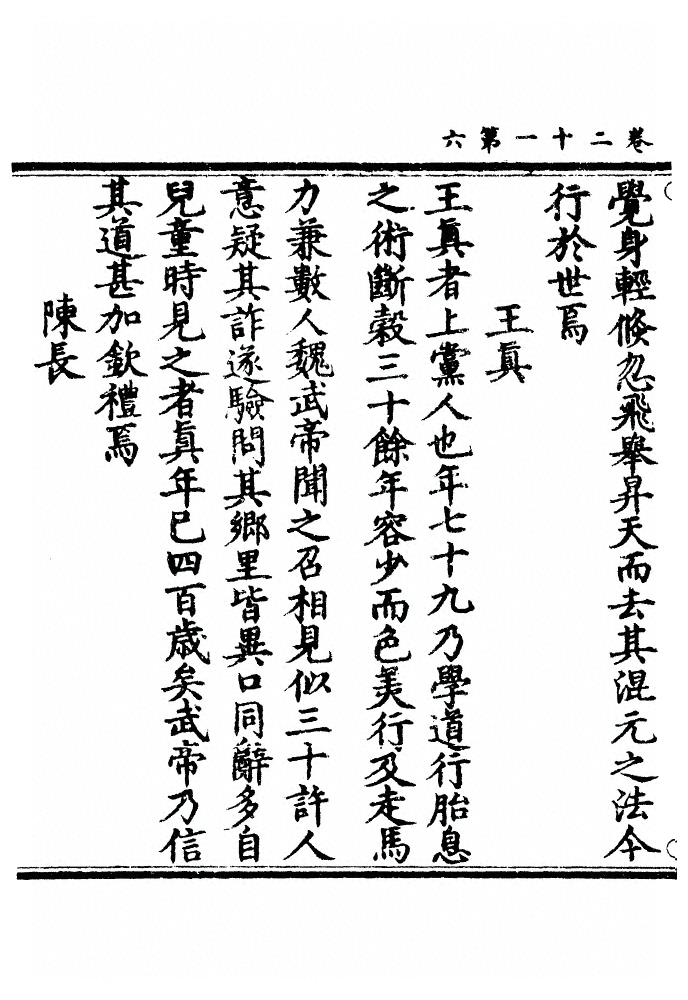 卷二十一第六
覺身輕倐忽飛舉昇天而去其混元之法今
行於世焉
王眞
王眞者上黨人也年七十九乃學道行胎息
之術斷穀三十餘年容少而色美行及走馬
力兼數人魏武帝聞之召相見似三十許人
意疑其詐遂驗問其鄉里皆異口同辭多自
兒童時見之者眞年已四百歲矣武帝乃信
其道甚加欽禮焉
陳長